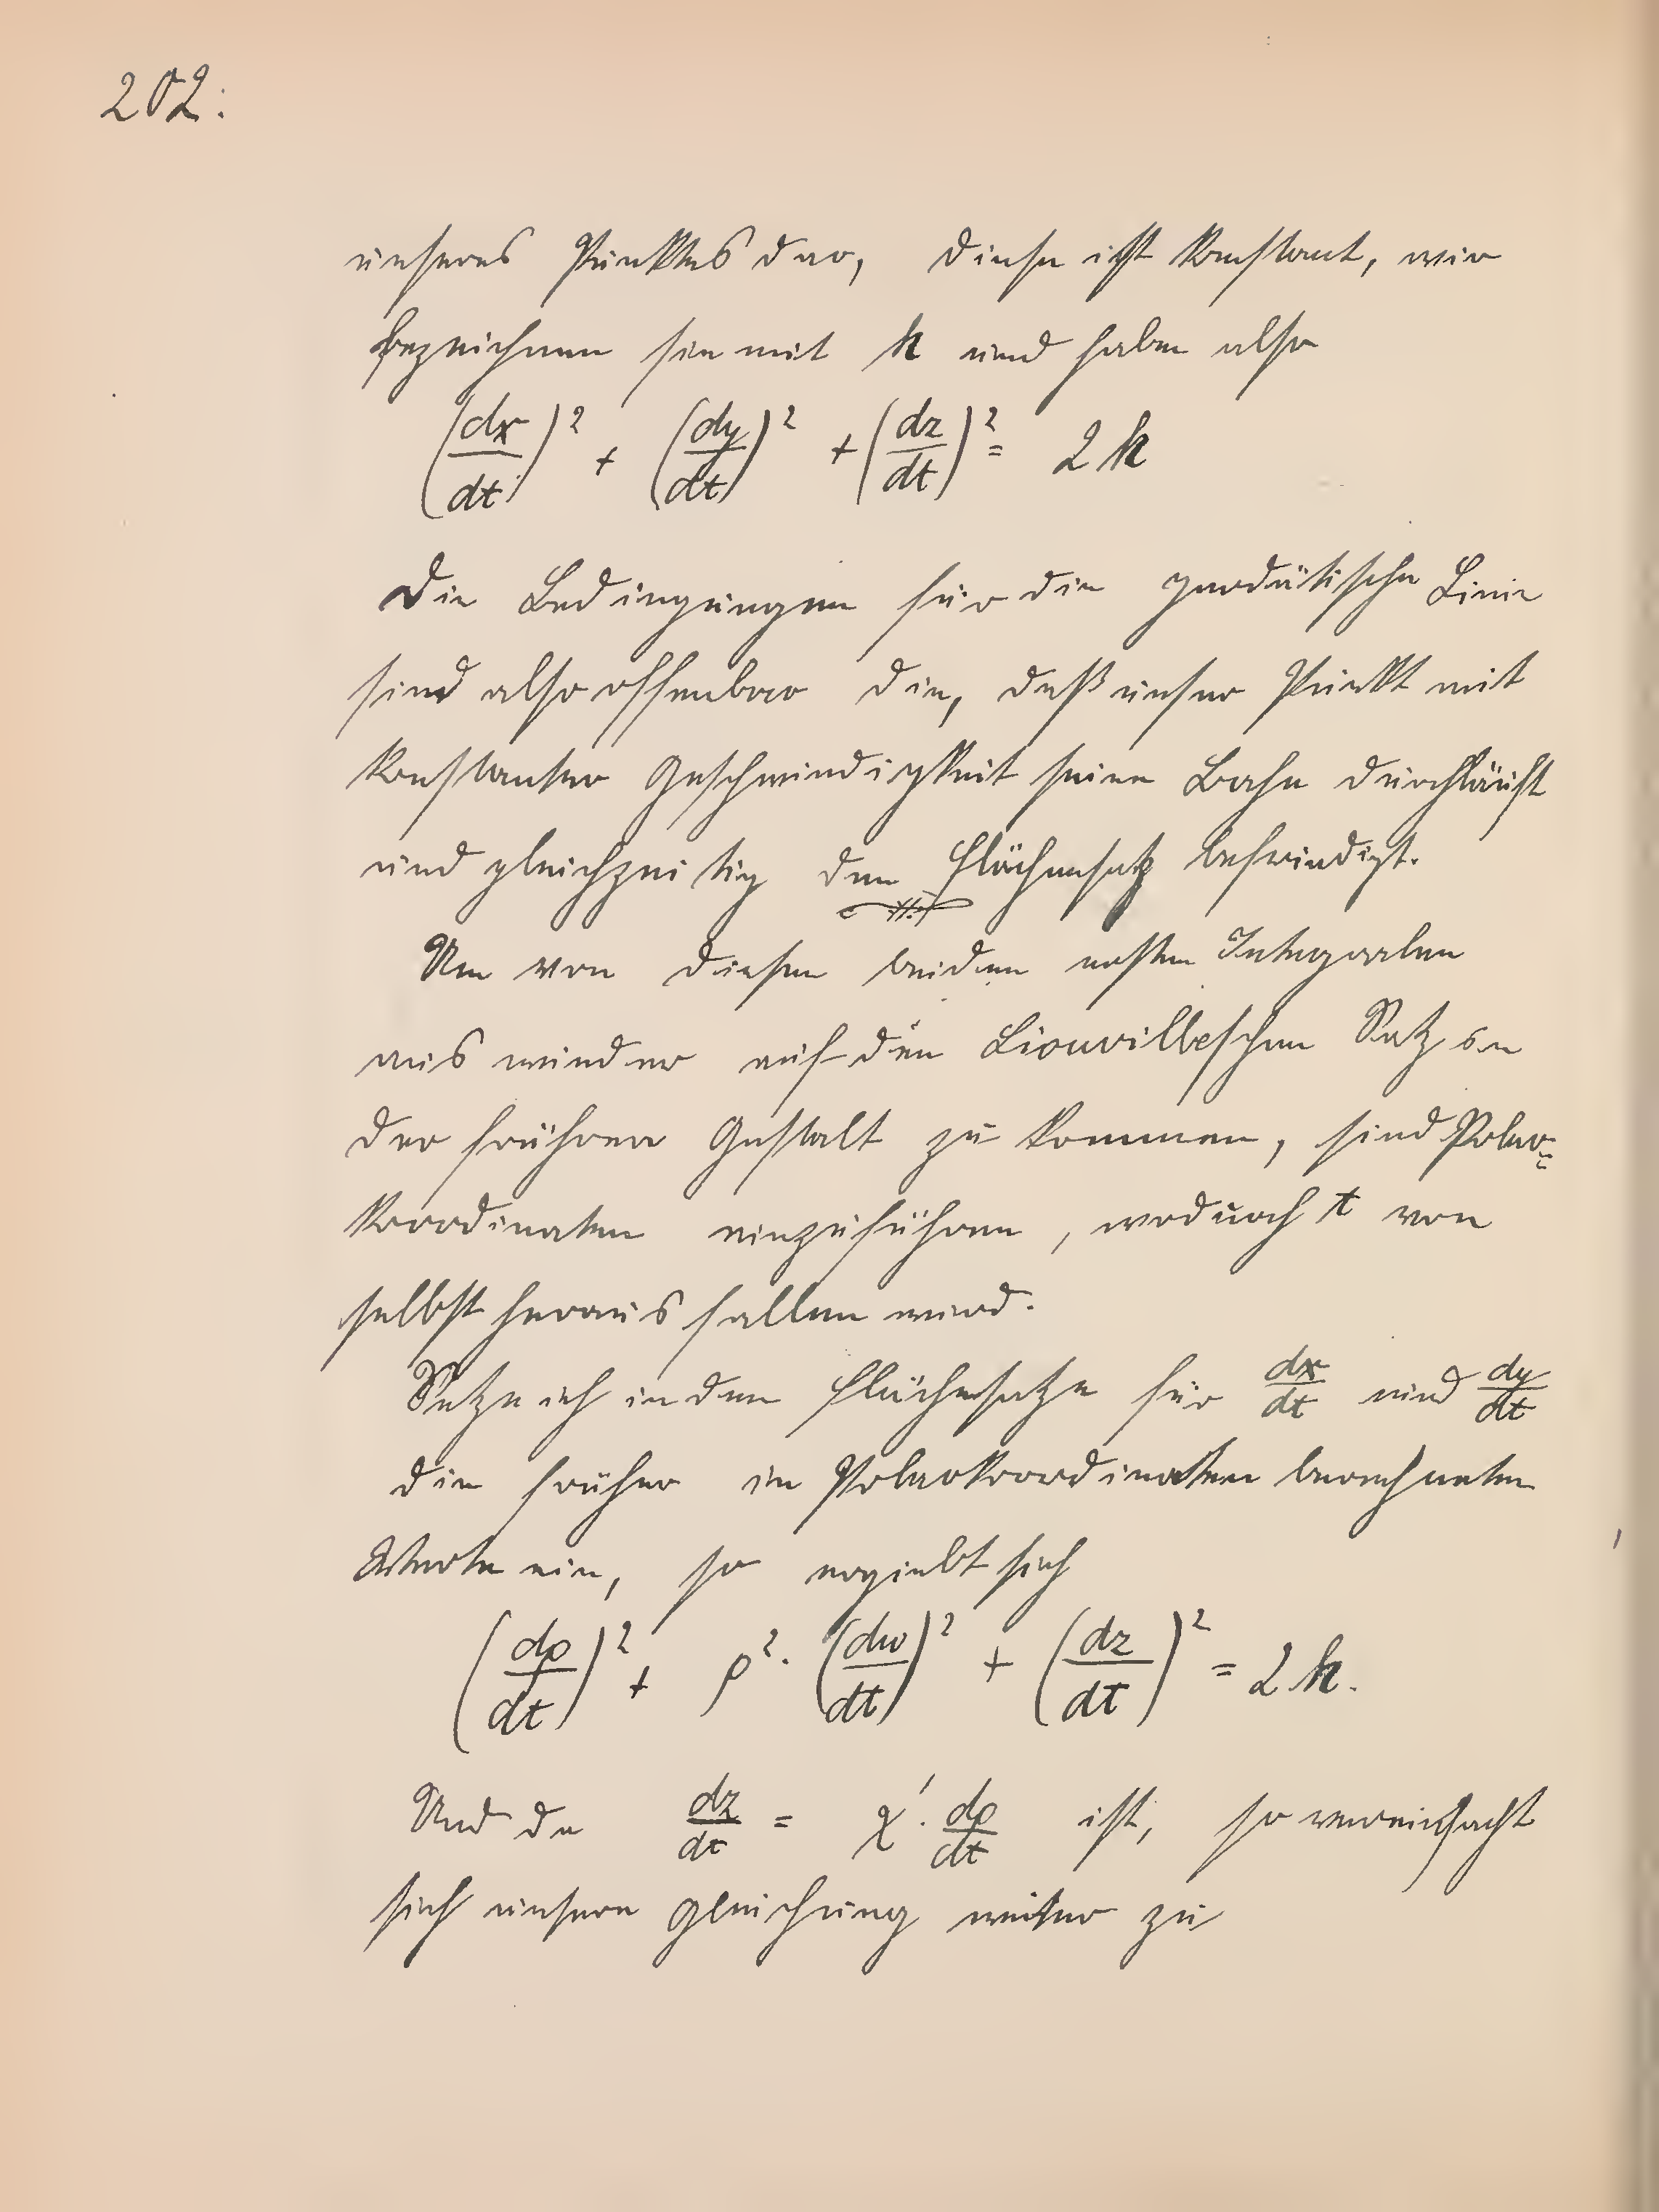 202.
unseres Punktes dar, diese ist konstant, wir
bezeichnen sie mit h und haben also
(dx/dt)² + (dy/dt)² + (dz/dt)² = 2h
Die Bedingungen für die geodätische Linie
sind also offenbar die, daß unser Punkt mit
konstanter Geschwindigkeit seine Bahn durchläuft
und gleichzeitig den Flächensatz befriedigt.
Um von diesen beiden ersten Integralen
aus wieder auf den Liouvilleschen Satz in
der frühren Gestalt zu kommen, sind Polar=
koordinaten einzuführen, wodurch t von
selbst heraus fallen wird.
Setze ich in dem Flächensatze für dx/dt und dy/dt
die früher in Polarkoordinaten berechneten
Werte ein, so ergiebt sich
(dρ/dt)² + ρ². (dω/dt)² + (dz/dt)² = 2h.
Und da dz/dt = χ'. dρ/dt ist, so vereinfacht
sich unsere Gleichung weiter zu